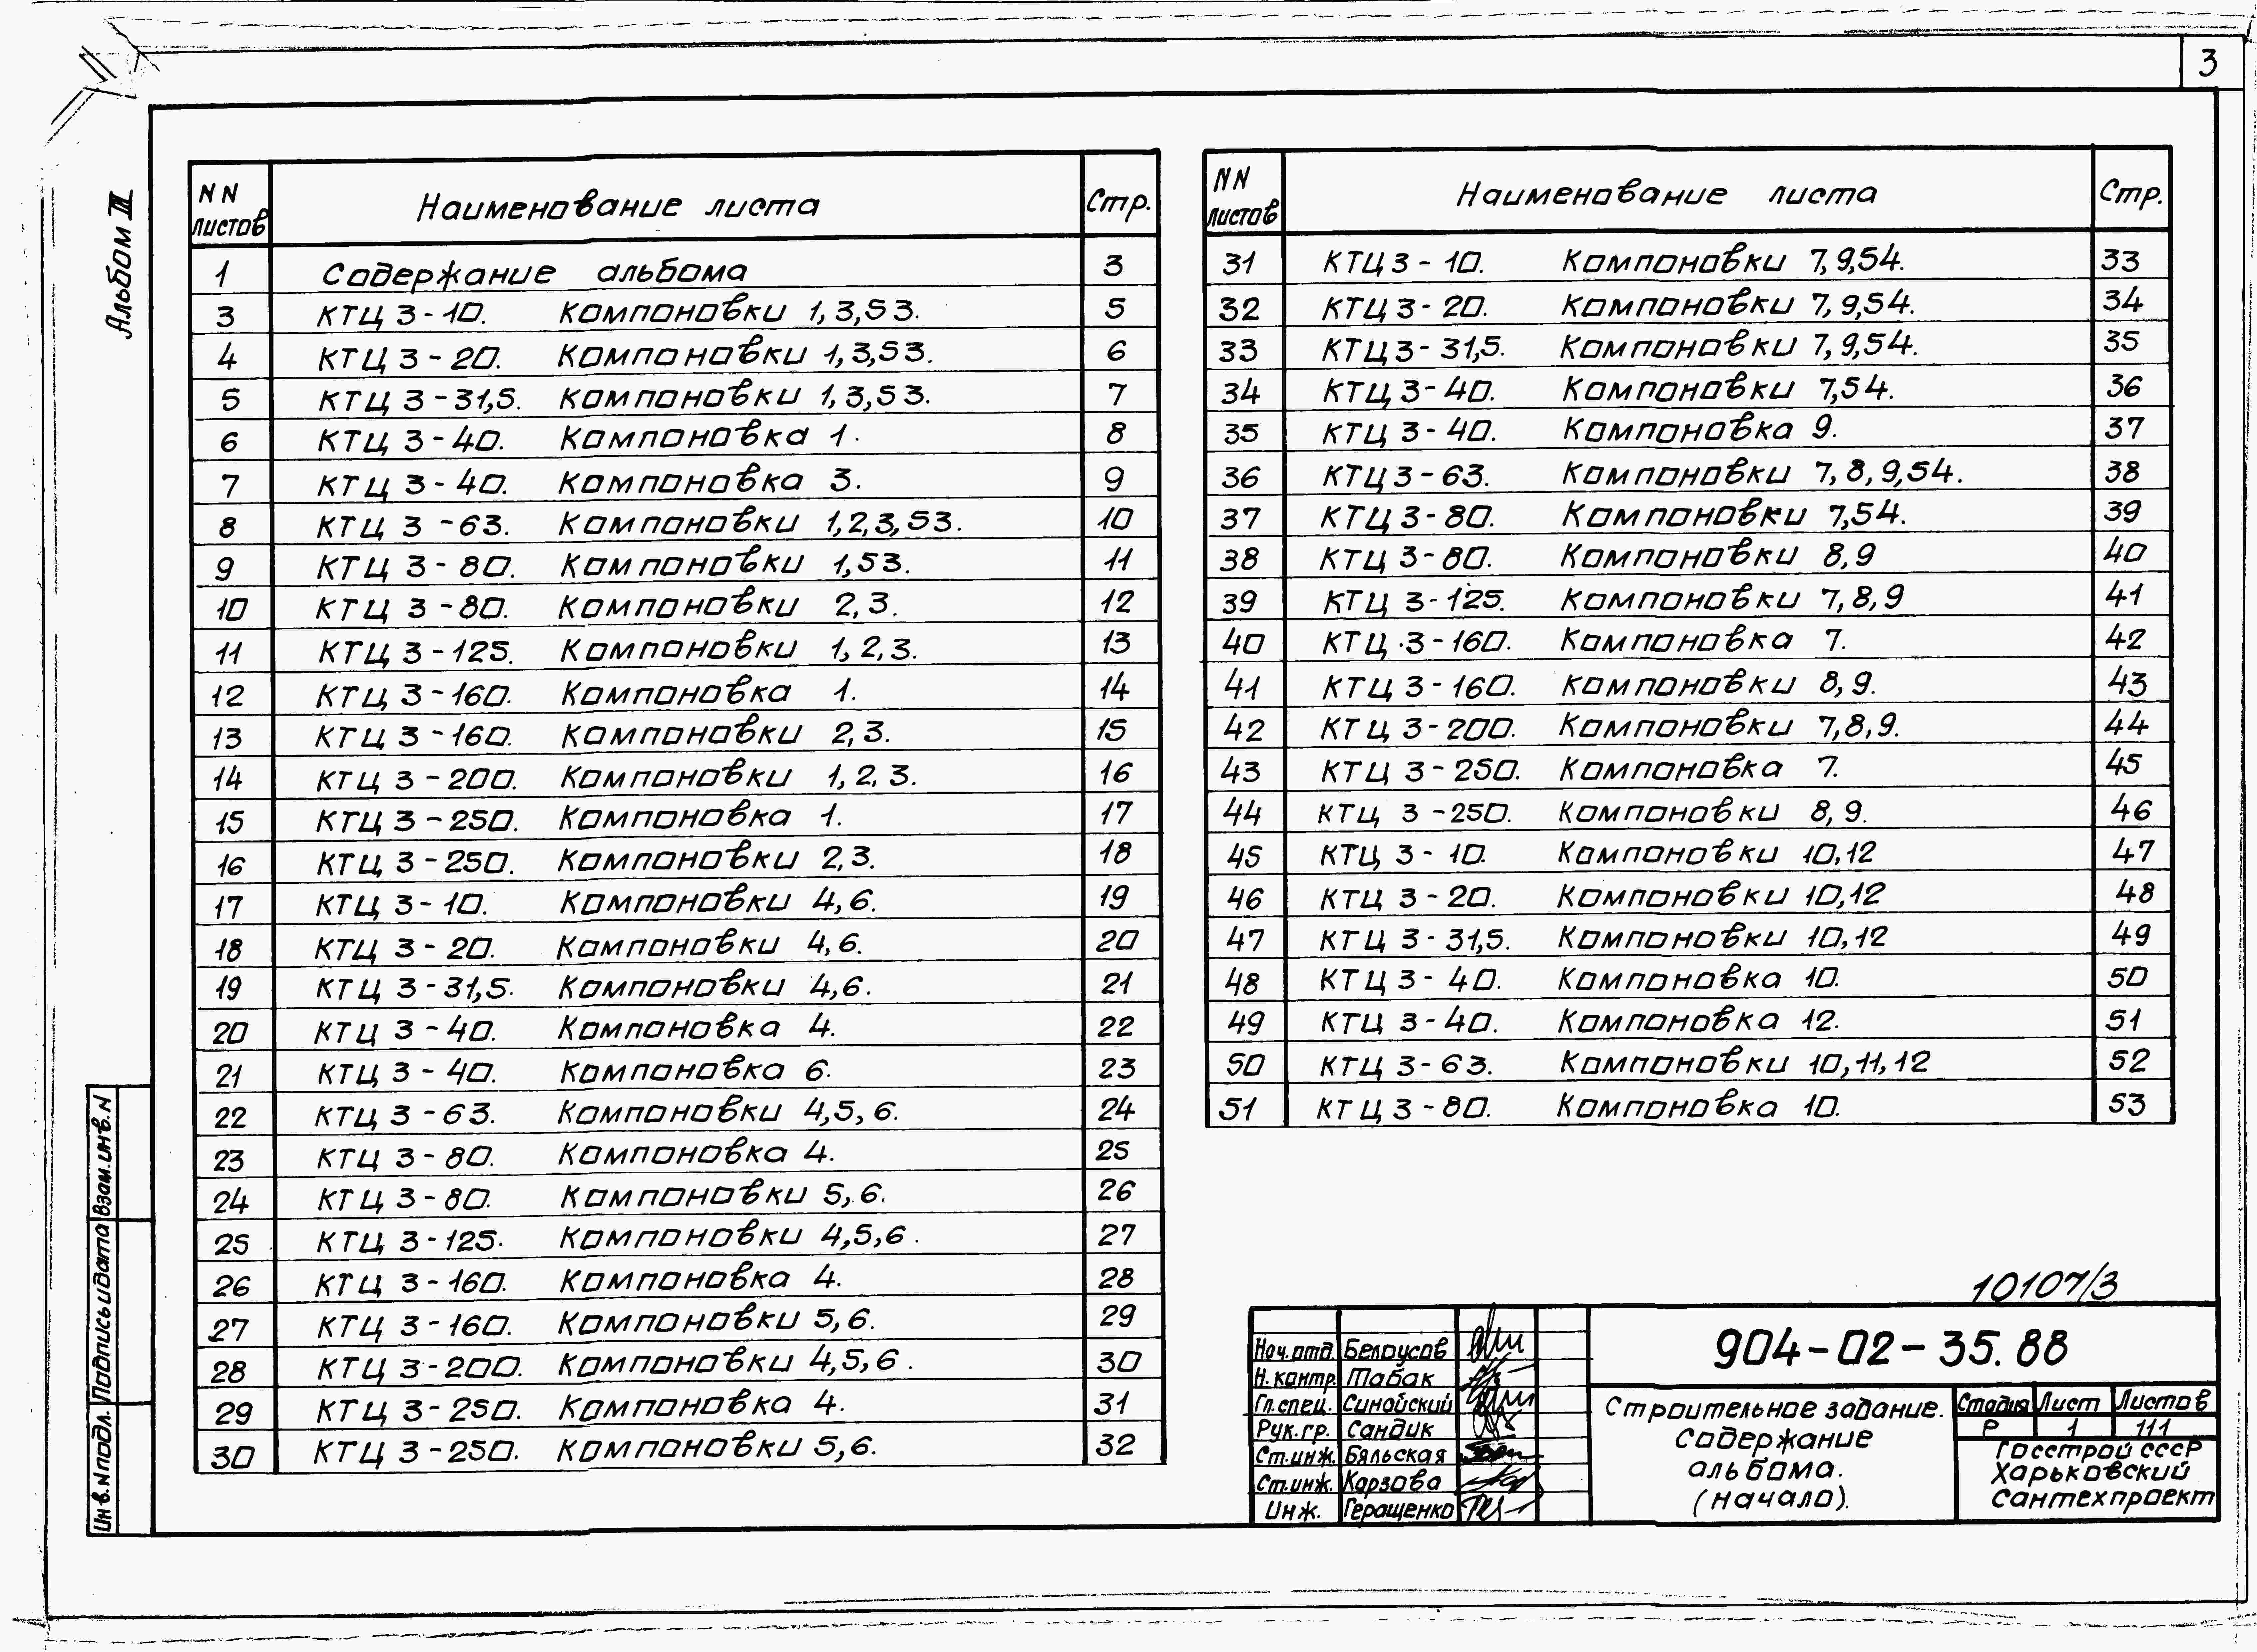 3
Альбом III
NN листов Наименование листа Стр.
1 Содержание альбома 3
3 КТЦ 3-10. Компоновки 1,3,53. 5
4 КТЦ 3-20. Компоновки 1,3,53. 6
5 КТЦ 3-31,5. Компоновки 1,3,53. 7
6 КТЦ 3-40. Компоновка 1. 8
7 КТЦ 3-40. Компоновка 3. 9
8 КТЦ 3-63. Компоновки 1,2,3,53. 10
9 КТЦ 3-80. Компоновки 1,53. 11
10 КТЦ 3-80. Компоновки 2,3. 12
11 КТЦ 3-125. Компоновки 1,2,3. 13
12 КТЦ 3-160. Компоновка 1. 14
13 КТЦ 3-160. Компоновки 2,3. 15
14 КТЦ 3-200. Компоновки 1,2,3. 16
15 КТЦ 3-250. Компоновка 1. 17
16 КТЦ 3-250. Компоновки 2,3. 18
17 КТЦ 3-10. Компоновки 4,6. 19
18 КТЦ 3-20. Компоновки 4,6. 20
19 КТЦ 3-31,5. Компоновки 4,6. 21
20 КТЦ 3-40. Компоновка 4. 22
21 КТЦ 3-40. Компоновка 6. 23
22 КТЦ 3-63. Компоновки 4,5,6. 24
23 КТЦ 3-80. Компоновка 4. 25
24 КТЦ 3-80. Компоновки 5,6. 26
25 КТЦ 3-125. Компоновки 4,5,6. 27
26 КТЦ 3-160. Компоновка 4. 28
27 КТЦ 3-160. Компоновки 5,6. 29
28 КТЦ 3-200. Компоновки 4,5,6. 30
29 КТЦ 3-250. Компоновка 4. 31
30 КТЦ 3-250. Компоновки 5,6. 32
NN листов Наименование листа Стр.
31 КТЦ 3-10. Компоновки 7,9,54. 33
32 КТЦ 3-20. Компоновки 7,9,54. 34
33 КТЦ 3-31,5. Компоновки 7,9,54. 35
34 КТЦ 3-40. Компоновки 7,54. 36
35 КТЦ 3-40. Компоновка 9. 37
36 КТЦ 3-63. Компоновки 7,8,9,54. 38
37 КТЦ 3-80. Компоновки 7,54. 39
38 КТЦ 3-80. Компоновки 8,9 40
39 КТЦ 3-125. Компоновки 7,8,9 41
40 КТЦ 3-160. Компоновка 7. 42
41 КТЦ 3-160. Компоновки 8,9. 43
42 КТЦ 3-200. Компоновки 7,8,9. 44
43 КТЦ 3-250. Компоновка 7. 45
44 КТЦ 3-250. Компоновки 8,9. 46
45 КТЦ 3-10. Компоновки 10,12 47
46 КТЦ 3-20. Компоновки 10,12 48
47 КТЦ 3-31,5. Компоновки 10,12 49
48 КТЦ 3-40. Компоновка 10. 50
49 КТЦ 3-40. Компоновка 12. 51
50 КТЦ 3-63. Компоновки 10,11,12 52
51 КТЦ 3-80. Компоновка 10. 53
Инв.N подл. Подпись и дата Взам.инв.N
10107/3
904-02-35.88
Нач.отд. Белоусов
Н.контр. Табак
Гл.спец. Синайский
Рук.гр. Сандик
Ст.инж. Бяльская
Ст.инж. Корзова
Инж. Геращенко
Строительное задание.
Содержание
альбома.
(начало).
Стадия Лист Листов
Р 1 111
Госстрой СССР
Харьковский
Сантехпроект